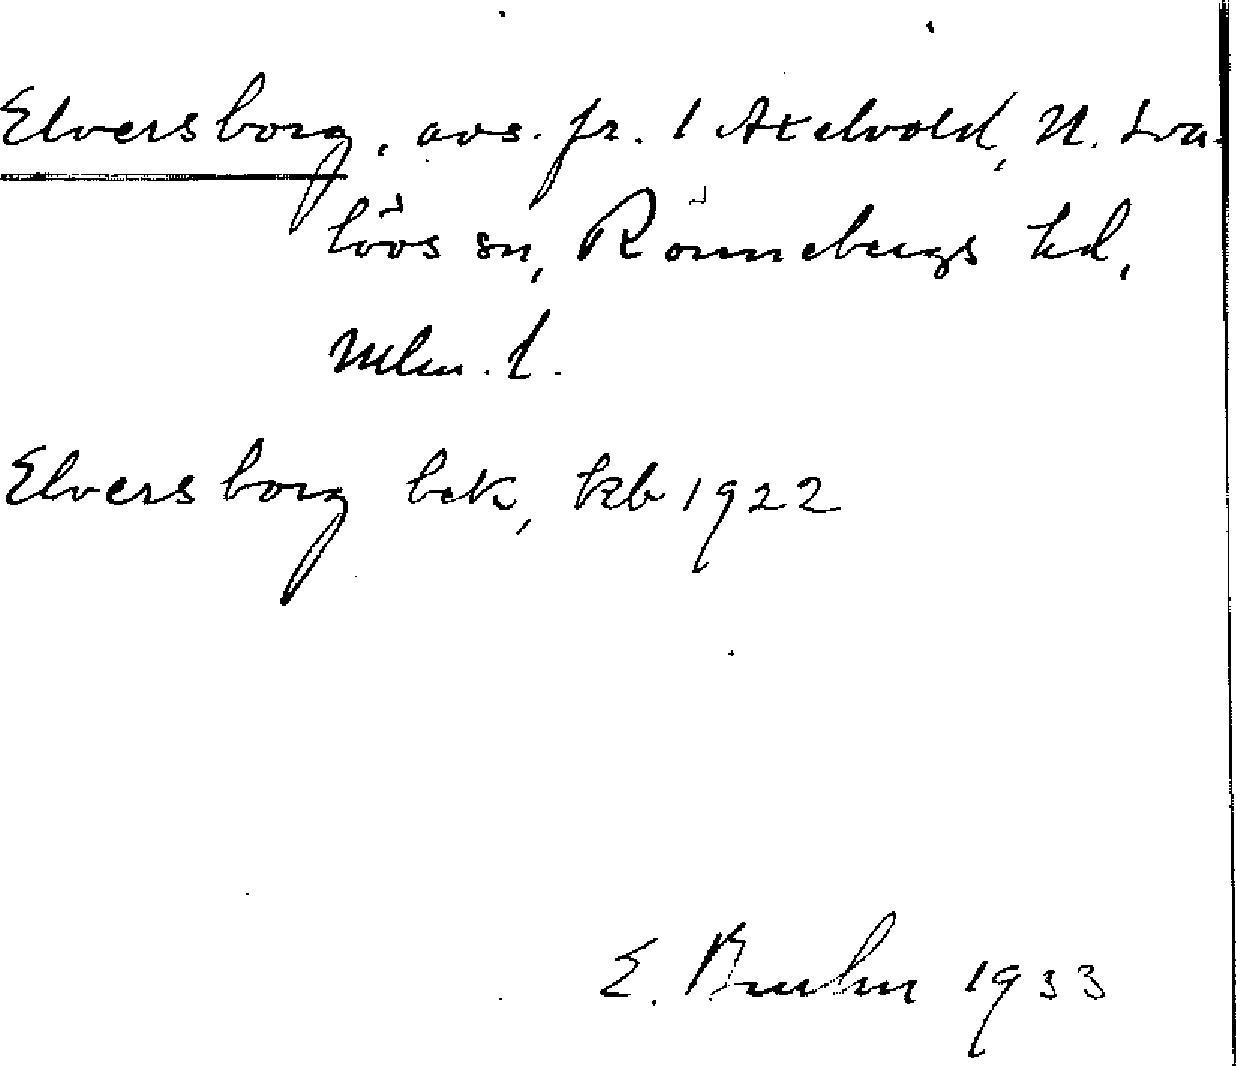 Elversborg, avs. fr. 1 Axelvold, N. Sva-
lövs sn, Rönnebergs hd,
Mlm. l.
Elversborg bek, kb 1922
E. Bruhn 1933